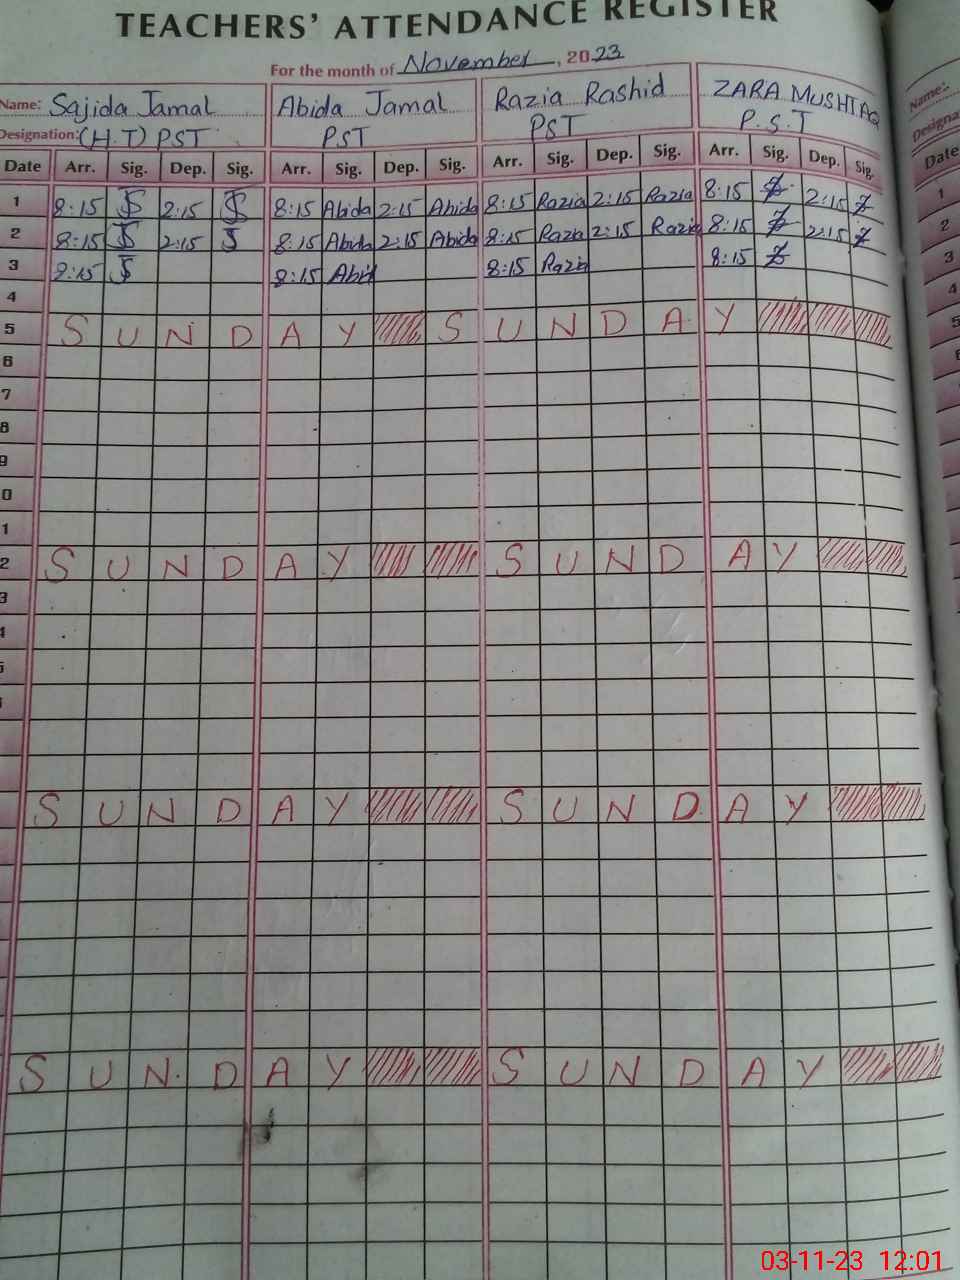 TEACHERS' ATTENDANCE REGISTER
For the month of November, 2023
Name: Sajida Jamal Abida Jamal Razia Rashid ZARA MUSHTAQ Name:
Designation: (H.T) PST PST PST P.S.T
Date Arr. Sig. Dep. Sig. Arr. Sig. Dep. Sig. Arr. Sig. Dep. Sig. Arr. Sig. Dep. Sig. Date
1 8:15 2:15 8:15 Abida 2:15 Abida 8:15 Razia 2:15 Razia 8:15 2:15 1
2 8:15 2:15 8:15 Abida 2:15 Abida 8:15 Razia 2:15 Razia 8:15 2:15 2
3 8:15 8:15 Abid 8:15 Razia 8:15 3
4 4
5 S U N D A Y S U N D A Y 5
6
7
8
9
0
1
2 S U N D A Y S U N D A Y
3
S U N D A Y S U N D A Y
S U N D A Y S U N D A Y
03-11-23 12:01